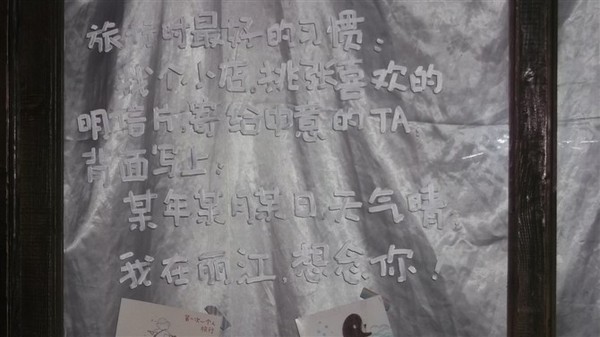 旅行时最好的习惯：
找个小店，挑张喜欢的
明信片，寄给中意的TA，
背面写上：
某年某月某日，天气晴，
我在丽江，想念你！